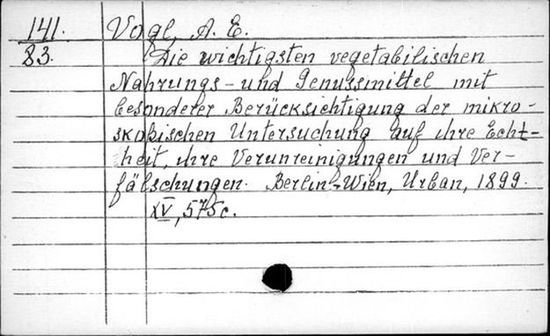 141. Vogl, A. E.
83. Die wichtigsten vegetabilischen
Nahrungs- und Genussmittel mit
besonderer Berücksichtigung der mikro-
skopischen Untersuchung auf ihre Echt-
heit, ihre Verunreinigungen und Ver-
fälschungen. Berlin-Wien, Urban, 1899.
XV, 575c.